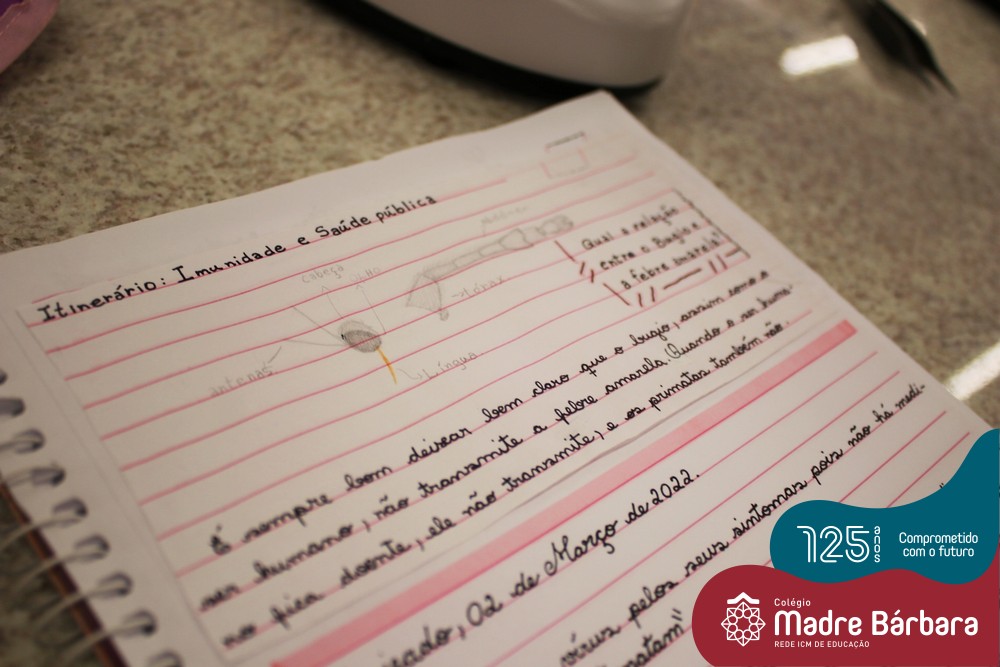 Itinerário: Imunidade e Saúde pública
cabeça
olho
antenas
língua
tórax
Qual a relação
entre o Bugio e
a febre amarela?
É sempre bom deixar bem claro que o bugio, assim como o
ser humano, não transmite a febre amarela. Quando o ser huma
no fica doente, ele não transmite, e os primatas também não.
02 de Março de 2022.
vírus pelos seus sintomas pois não há medi-
matam"
125 anos
Comprometido
com o futuro
Colégio
Madre Bárbara
REDE ICM DE EDUCAÇÃO